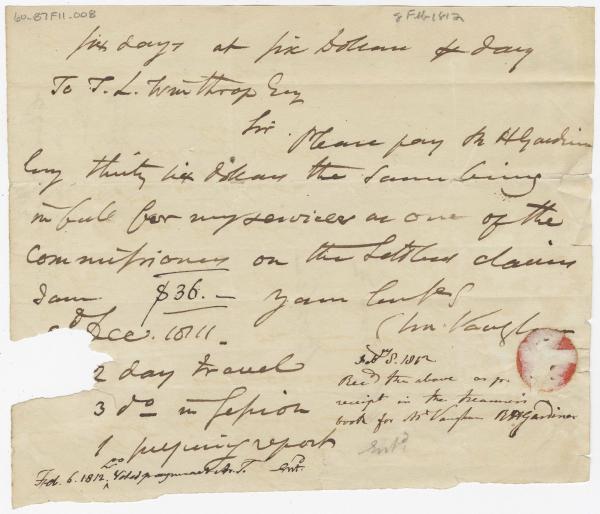 60-87F11.008
8 Feb 1812
six days at six Dollars & day
To T. L. Winthrop Esq
Sir Please pay R H Gardiner
Esq thirty six Dollars the same being
in full for my services as one of the
Commissioners on the Settlers claims
$36.—
Dec. 1811
2 day travel
3 do in Session
1 preparing report
Feby 8. 1812
Recd the above as pr
receipt in the treasurers
book for Mr Vaughan R H Gardiner
Entd
Feb. 6. 1812.